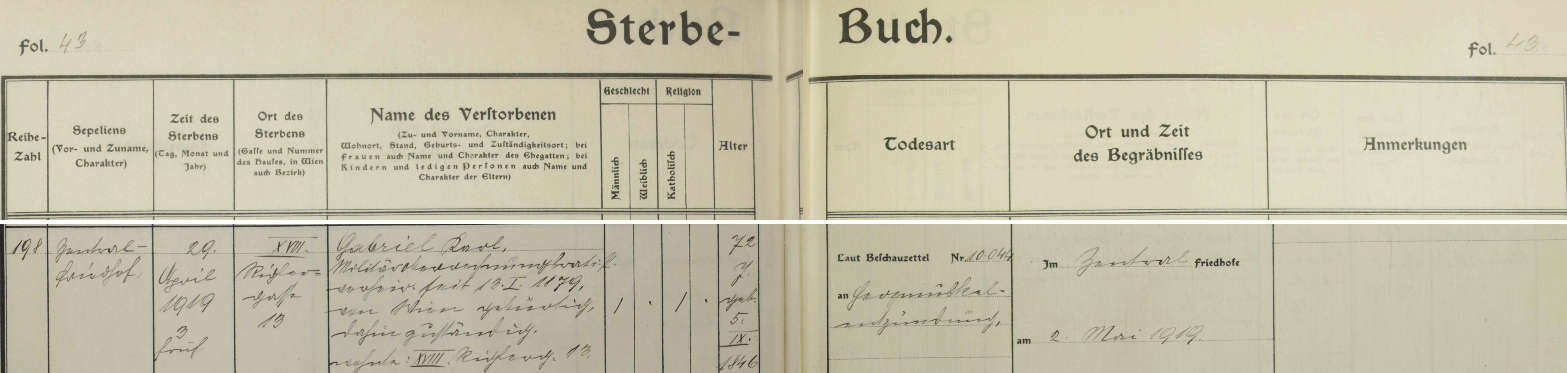 Sterbe- Buch.
Fol. 43
Fol. 43
Reihe-Zahl
Sepeliens
(Vor- und Zuname,
Charakter)
Zeit des
Sterbens
(Tag, Monat und
Jahr)
Ort des
Sterbens
(Gasse und Nummer
des Hauses, in Wien
auch Bezirk)
Name des Verstorbenen
(Zu- und Vorname, Charakter,
Wohnort, Stand, Geburts- und Zuständigkeitsort; bei
Frauen auch Name und Charakter des Ehegatten; bei
Kindern und ledigen Personen auch Name und
Charakter der Eltern)
Geschlecht
Männlich
Weiblich
Religion
Katholisch
Alter
Todesart
Ort und Zeit
des Begräbnisses
Anmerkungen
198
Zentral-
friedhof.
29.
April
1919
3
früh
XVIII.
Rigler-
gasse
13
Gabriel Karl,
seit 13. I. 1879,
von Wien gebürtig,
dahin zuständig.
wohnte: XVIII. Riglerg. 13.
1
1
72
J.
geb.
5.
IX.
1846
Laut Beschauzettel Nr. 10.044
an Herzmuskel-
entzündung,
Im Zentral friedhofe
am 2. Mai 1919.